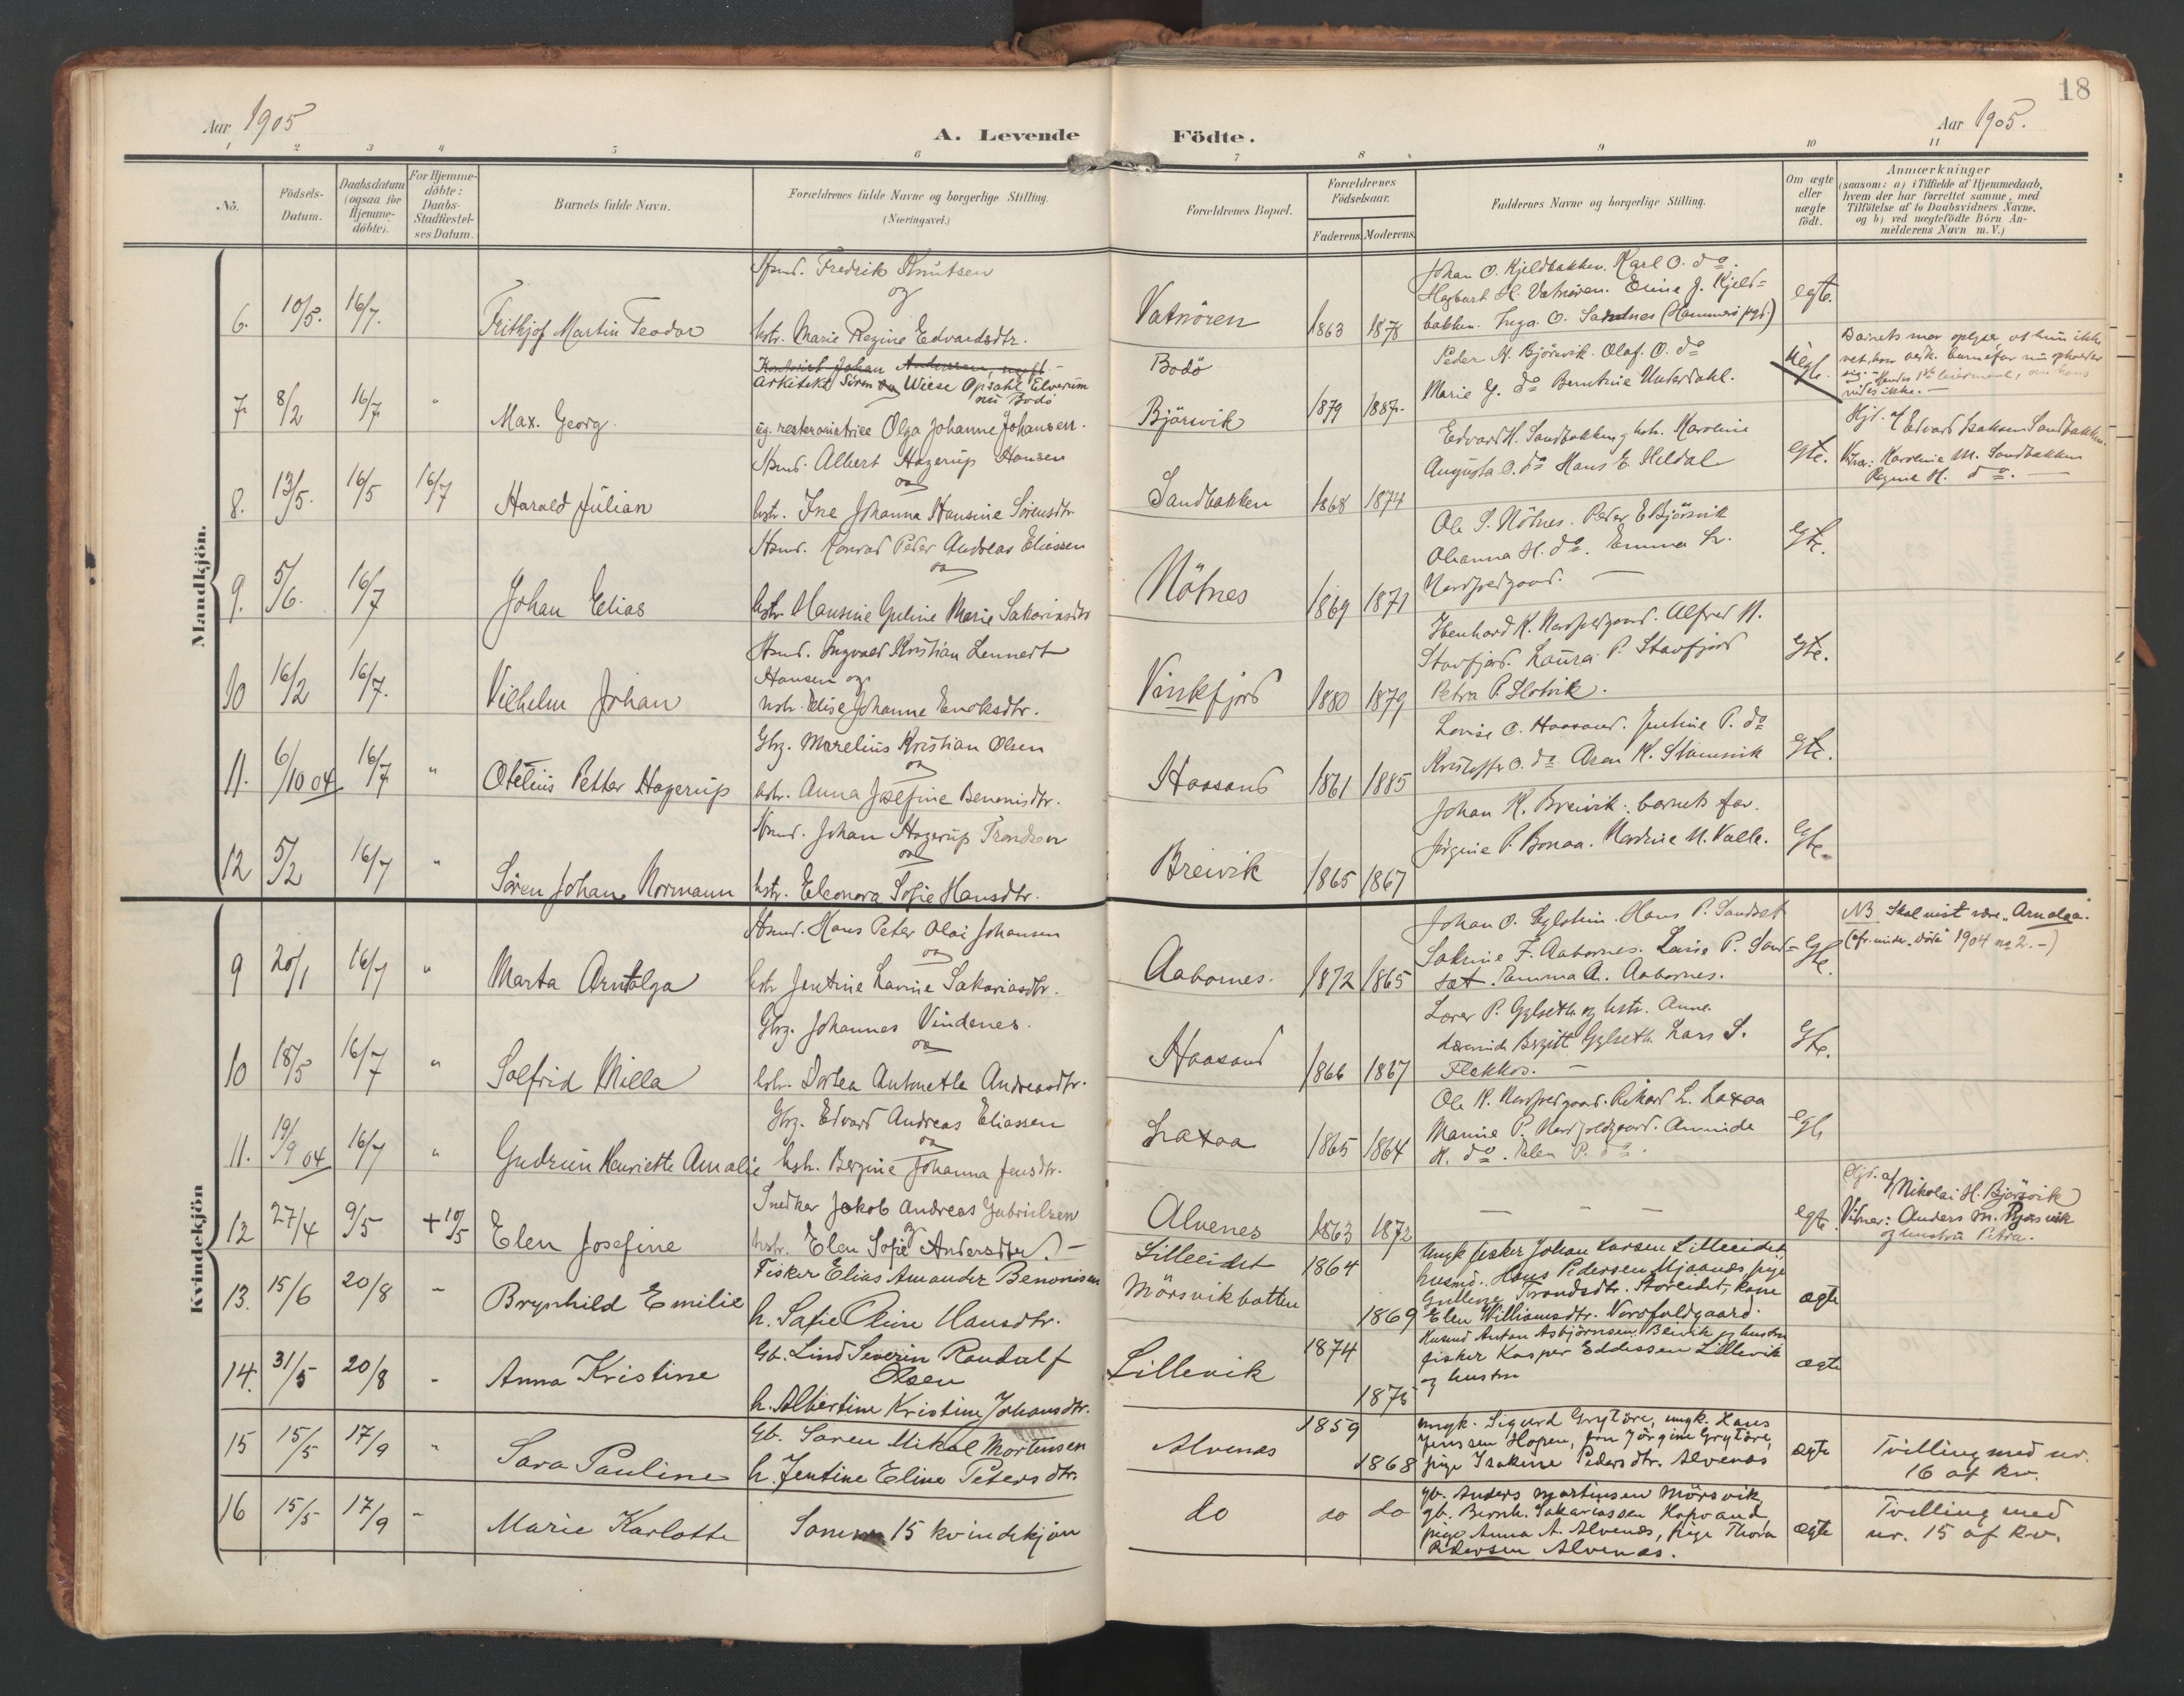 18
Aar 1905
A. Levende Födte.
Aar 1905.
1 2 3 4 5 6 7 8 9 10 11
No.
Födsels-Datum.
Daabsdatum (ogsaa for Hjemme-döbte).
For Hjemme-döbte: Daabs-Stadfæstel-ses Datum.
Barnets fulde Navn.
Forældrenes fulde Navne og borgerlige Stilling.
(Næringsvei.)
Forældrenes Bopæl.
Forældrenes Födselsaar.
Faderens. Moderens.
Faddernes Navne og borgerlige Stilling.
Om ægte eller uægte födt.
Anmærkninger
(saasom: a) i Tilfælde af Hjemmedaab,
hvem der har forrettet samme, med
Tilföielse af to Daabsvidners Navne,
og b) ved uægtefödte Börn An-
melderens Navn m. V.)
Mandkjön.
6. 10/5. 16/7. Frithjof Martin Teodor
Fredrik Knutsen
og
hstr. Marie Regine Edvardsdtr.
Vatnören 1863 1878
Johan O. Kjeldbakken. Karl O. do.
Hagbart H. Vatnören. J. Kjeld-
bakken. Inga O. Sandnes
egte.
7. 8/2 16/7 " Max. Georg.
Arkitekt Sören Wiese Opsahl Elverum
nu Bodö
ug. Olga Johanne Johansen.
Bodö
Björsvik 1879 1887
Peder N. Björsvik. Olaf. O. do
Marie G. do Berntine Underdahl.
uegte.
Barnets mor oplyser, at hun ikke
8. 13/5. 16/5 16/7 Harald Julian
Albert Hagerup Hansen
og
hstr. Ine Johanna Hansine Sörensdtr.
Sandbakken 1868 1874
Edvard H. Sandbakken og hstr. Karoline
Augusta O. do Hans E. Heldal
egte.
Hjd. af Edvard Isaksen Sandbakken.
Karoline M. Sandbakken
Regine H. do.
9. 5/6. 16/7 Johan Elias
Konrad Peder Andreas Eliassen
og
hstr. Hansine Guline Marie Sakariasdtr
Nötnes 1869 1871
Ole S. Nötnes. Peder E Björsvik
Olianna H. do. Emma L.
egte.
10 16/2 16/7. Vilhelm Johan
Ingvald Kristian Lennert
Hansen og
hstr. Elise Johanne Enoksdtr.
Vinkfjord 1880 1879
Alfred N.
Stavfjord. Laura P. Stavfjord
Petra P. Slotvik.
egte.
11. 6/10 04 16/7 " Otelius Petter Hagerup
Gbrg. Marelius Kristian Olsen
og
hstr. Anna Josefine Benonisdtr.
Haasand 1861 1885
Lovise O. Haasand. Jentine P. do
Kristoffer O. do Aron K. Stamsvik
egte.
12 5/2 16/7 " Sören Johan Normann
Johan Hagerup Trondsen
og
hstr. Eleonora Sofie Hansdtr.
Breivik 1865 1867
Johan K. Breivik: barnets far.
Jörgine P. Bonaa. Nordine N. Valle.
egte.
Kvindekjön
9 20/1 16/7 " Marta Arntolga
Hans Peter Olai Johansen
og
hstr Jentine Lavine Sakariasdtr.
Aabornes. 1872 1865
Johan O. Hans P. Sandset
Sakrine F. Aabornes. Lovise P. Sand-
set. Emma A. Aabornes.
egte.
NB Skal vist være "Arnolga".
(cfr. under "Döde" 1904 no 2. -)
10 18/5 16/7 " Solfrid Milla
Gbrg. Johannes Vindenes.
og
hstr. Dortea Antonette Andreasdtr.
Haasand 1866 1867
Lærer P. Gylseth og hstr. Anne.
Lærerinde Bergitt Gylseth Lars S.
Flekkos.
egte.
11. 19/9 04 16/7 " Gudrun Henriette Amalie
Gbrg. Edvard Andreas Eliassen
og
hstr. Bergine Johanna Jensdtr.
Laxaa 1865 1864
Ole K. Rikard L. Laxaa
Marine P.
K. do. P. do.
egte
12 27/4 9/5 + 10/5 Elen Josefine
Snedker Jakob Andreas Gabrielsen
og
hstr. Elen Sofie Andersdtr.
Alvenes 1863 1872
— — —
egte
Hjd. af Nikolai H. Björsvik
Vitner: Anders M. Björsvik
og hustru Petra.
13. 15/6 20/8 " Brynhild Emilie
Fisker Elias Amandus Benonisen
h. Sofie Oline Hansdtr.
Lilleeidet
Mörsvikbotten 1864 1869
Ungk fisker Johan Larsen Lilleeidet,
husmd. Hans Pedersen Mjaanes, pige
Trondsdtr. Storeidet, kone
Elen Williamsdtr. Nordfoldgaard.
ægte
14. 31/5 20/8 " Anna Kristine
Gb. Lind Severin Randulf
Olsen
h. Albertine Kristine Johansdtr.
Lillevik 1874 1875
Husmd Anton Asbjörnsen Breivik og hustru
fisker Kasper Eddissen Lillevik
og hustru
ægte
15 15/5 17/9 " Sara Pauline
Gb. Soren Mikal Mortensen
h. Jentine Eline Peters dtr.
Alvenes 1859 1868
ungk. Sigurd Grytöre, ungk. Hans
Jenssen Hopen, fru Jörgine Grytöre,
pige Isakine Pedersdtr. Alvenes
ægte
Tvilling med nr.
16 af kv.
16 15/5 17/9 " Marie Karlotte
Som nr 15 kvindekjøn
do do do
gb. Anders Martinsen Mörsvik,
gb. Bernh. Sakariassen Hopvand,
pige Anna A. Alvenes, pige Thora
Pedersen Alvenes.
ægte
Tvilling med
nr. 15 af kv.